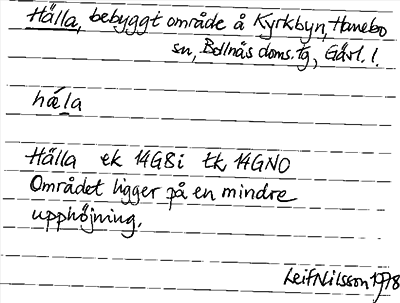 Hälla, bebyggt område å Kyrkbyn, Hanebo
sn, Bollnäs doms. tg, Gävl. l.
hǽla
Hälla ek 14G8i tk 14GNO
Området ligger på en mindre
upphöjning.
Leif Nilsson 1978